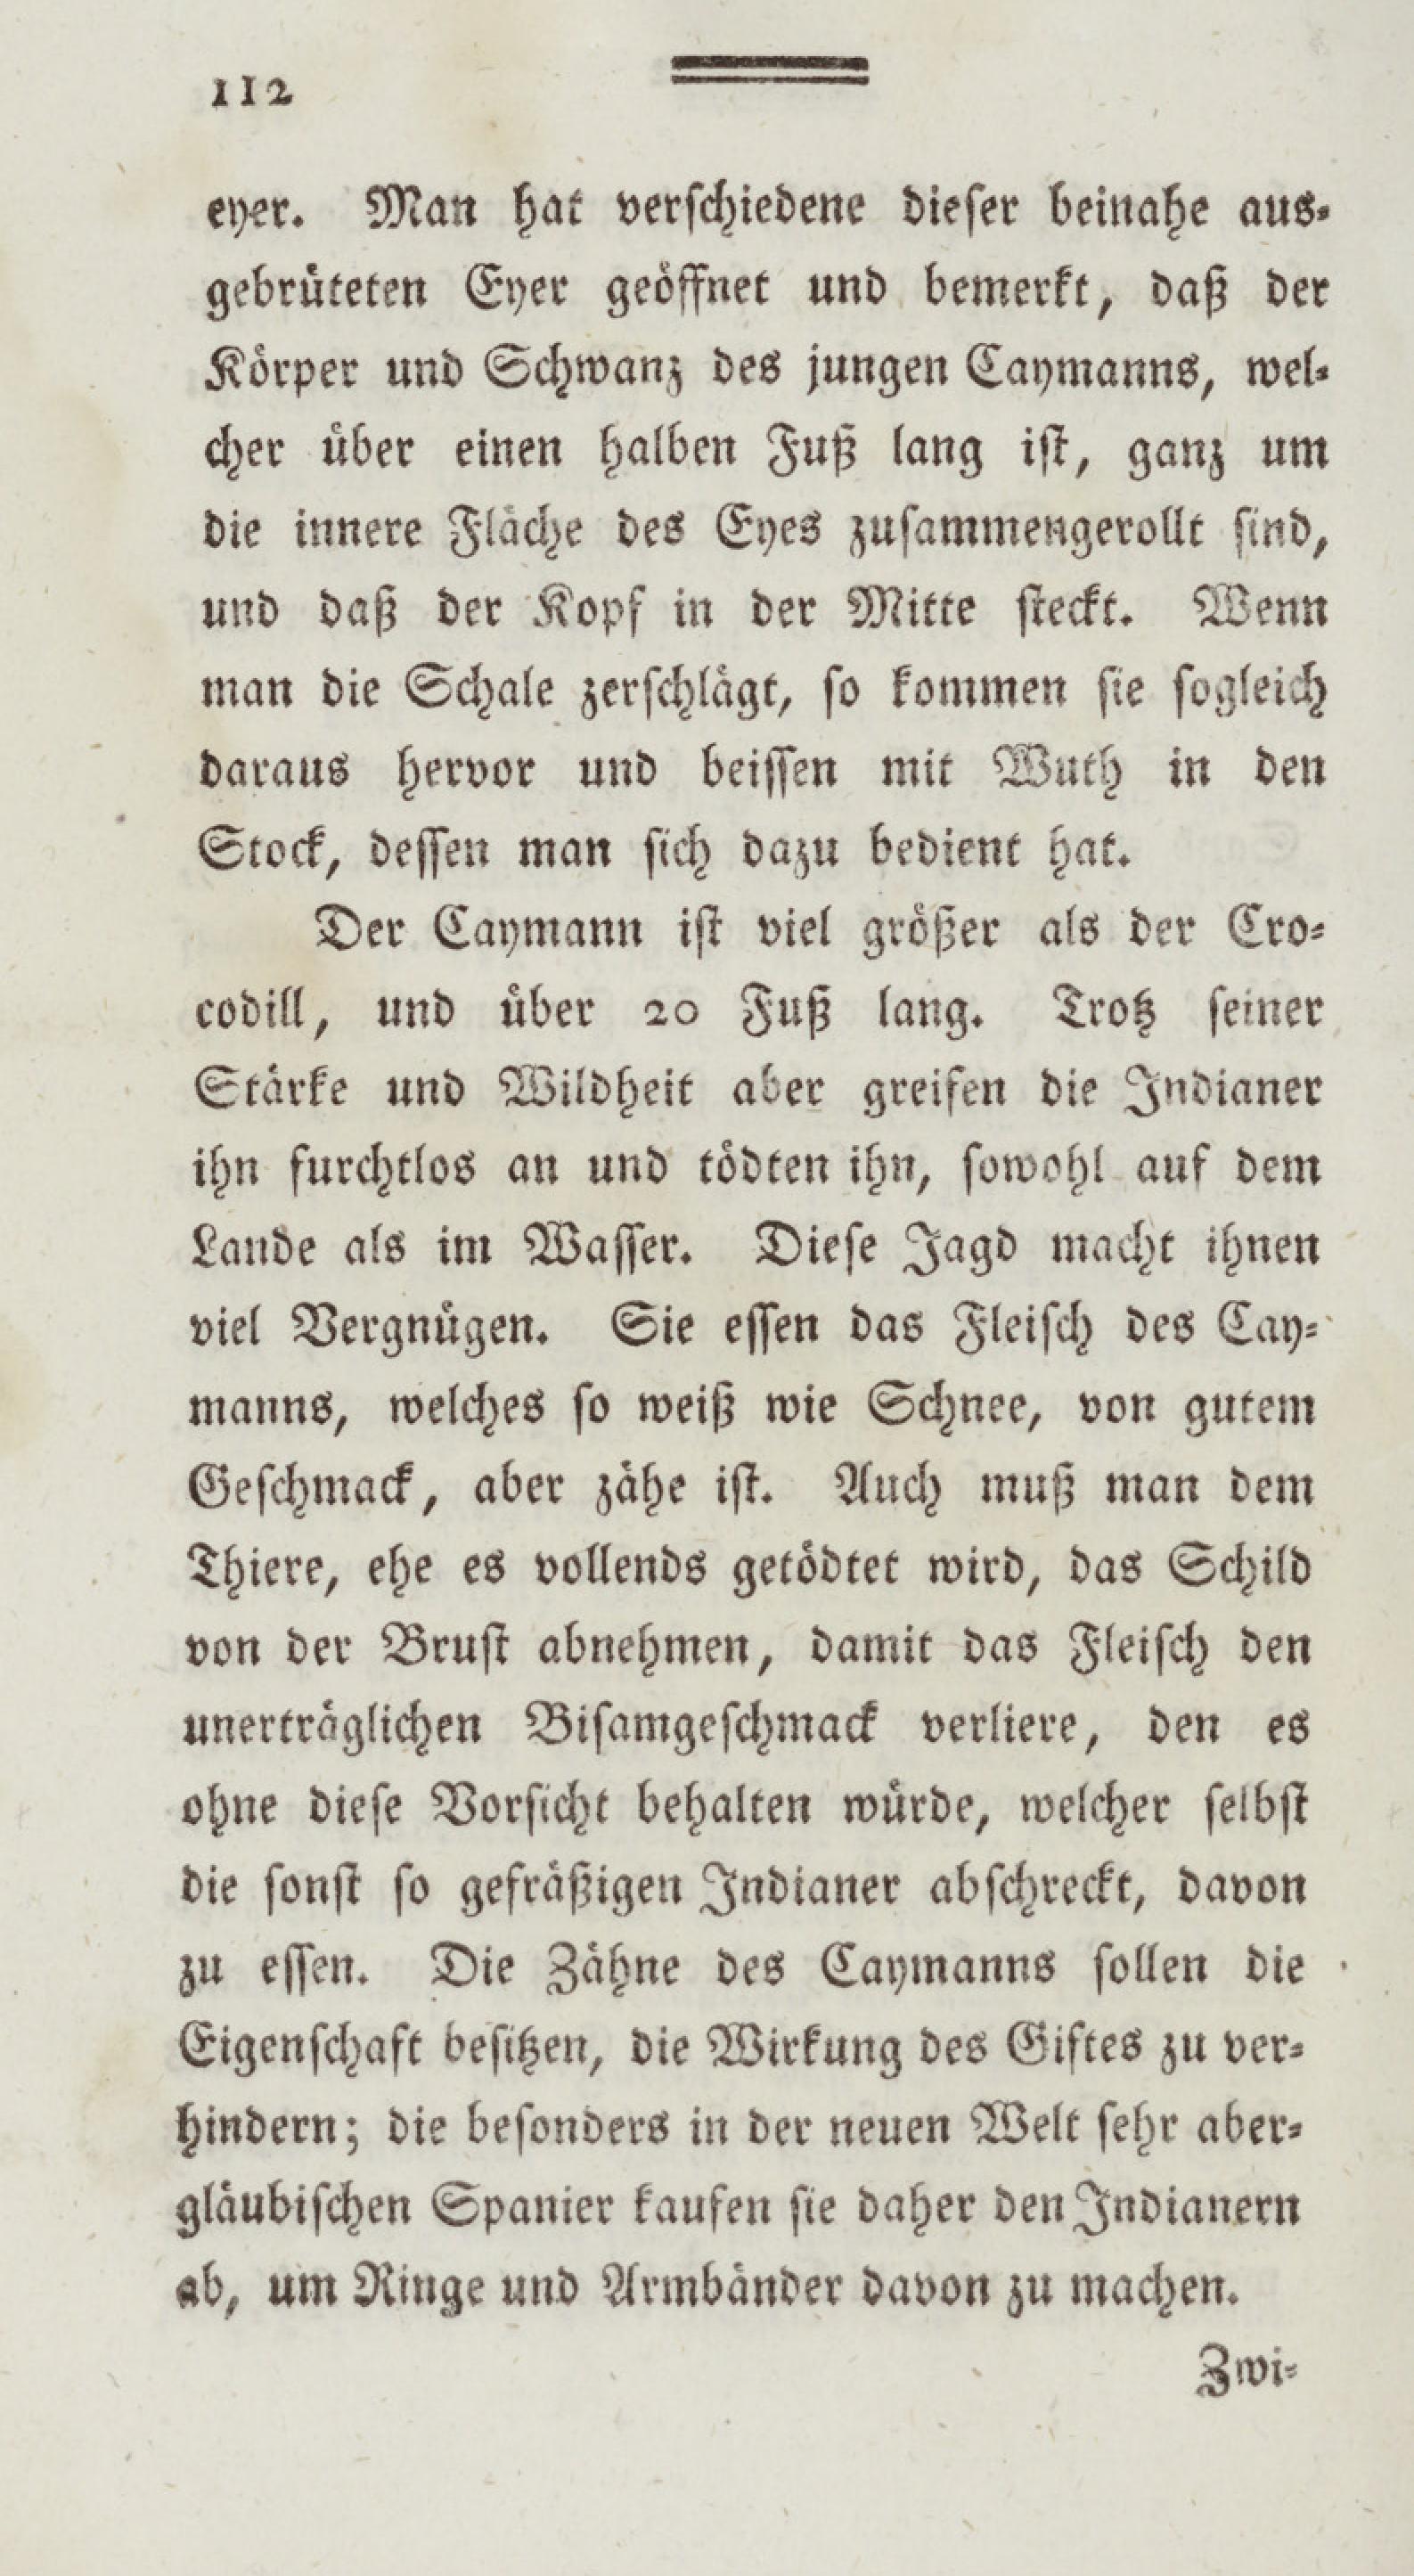 112
eyer. Man hat verschiedene dieser beinahe aus-
gebrüteten Eyer geöffnet und bemerkt, daß der
Körper und Schwanz des jungen Caymanns, wel-
cher über einen halben Fuß lang ist, ganz um
die innere Fläche des Eyes zusammengerollt sind,
und daß der Kopf in der Mitte steckt. Wenn
man die Schale zerschlägt, so kommen sie sogleich
daraus hervor und beissen mit Wuth in den
Stock, dessen man sich dazu bedient hat.
Der Caymann ist viel größer als der Cro-
codill, und über 20 Fuß lang. Trotz seiner
Stärke und Wildheit aber greifen die Indianer
ihn furchtlos an und tödten ihn, sowohl auf dem
Lande als im Wasser. Diese Jagd macht ihnen
viel Vergnügen. Sie essen das Fleisch des Cay-
manns, welches so weiß wie Schnee, von gutem
Geschmack, aber zähe ist. Auch muß man dem
Thiere, ehe es vollends getödtet wird, das Schild
von der Brust abnehmen, damit das Fleisch den
unerträglichen Bisamgeschmack verliere, den es
ohne diese Vorsicht behalten würde, welcher selbst
die sonst so gefräßigen Indianer abschreckt, davon
zu essen. Die Zähne des Caymanns sollen die
Eigenschaft besitzen, die Wirkung des Giftes zu ver-
hindern; die besonders in der neuen Welt sehr aber-
gläubischen Spanier kaufen sie daher den Indianern
ab, um Ringe und Armbänder davon zu machen.
Zwi-